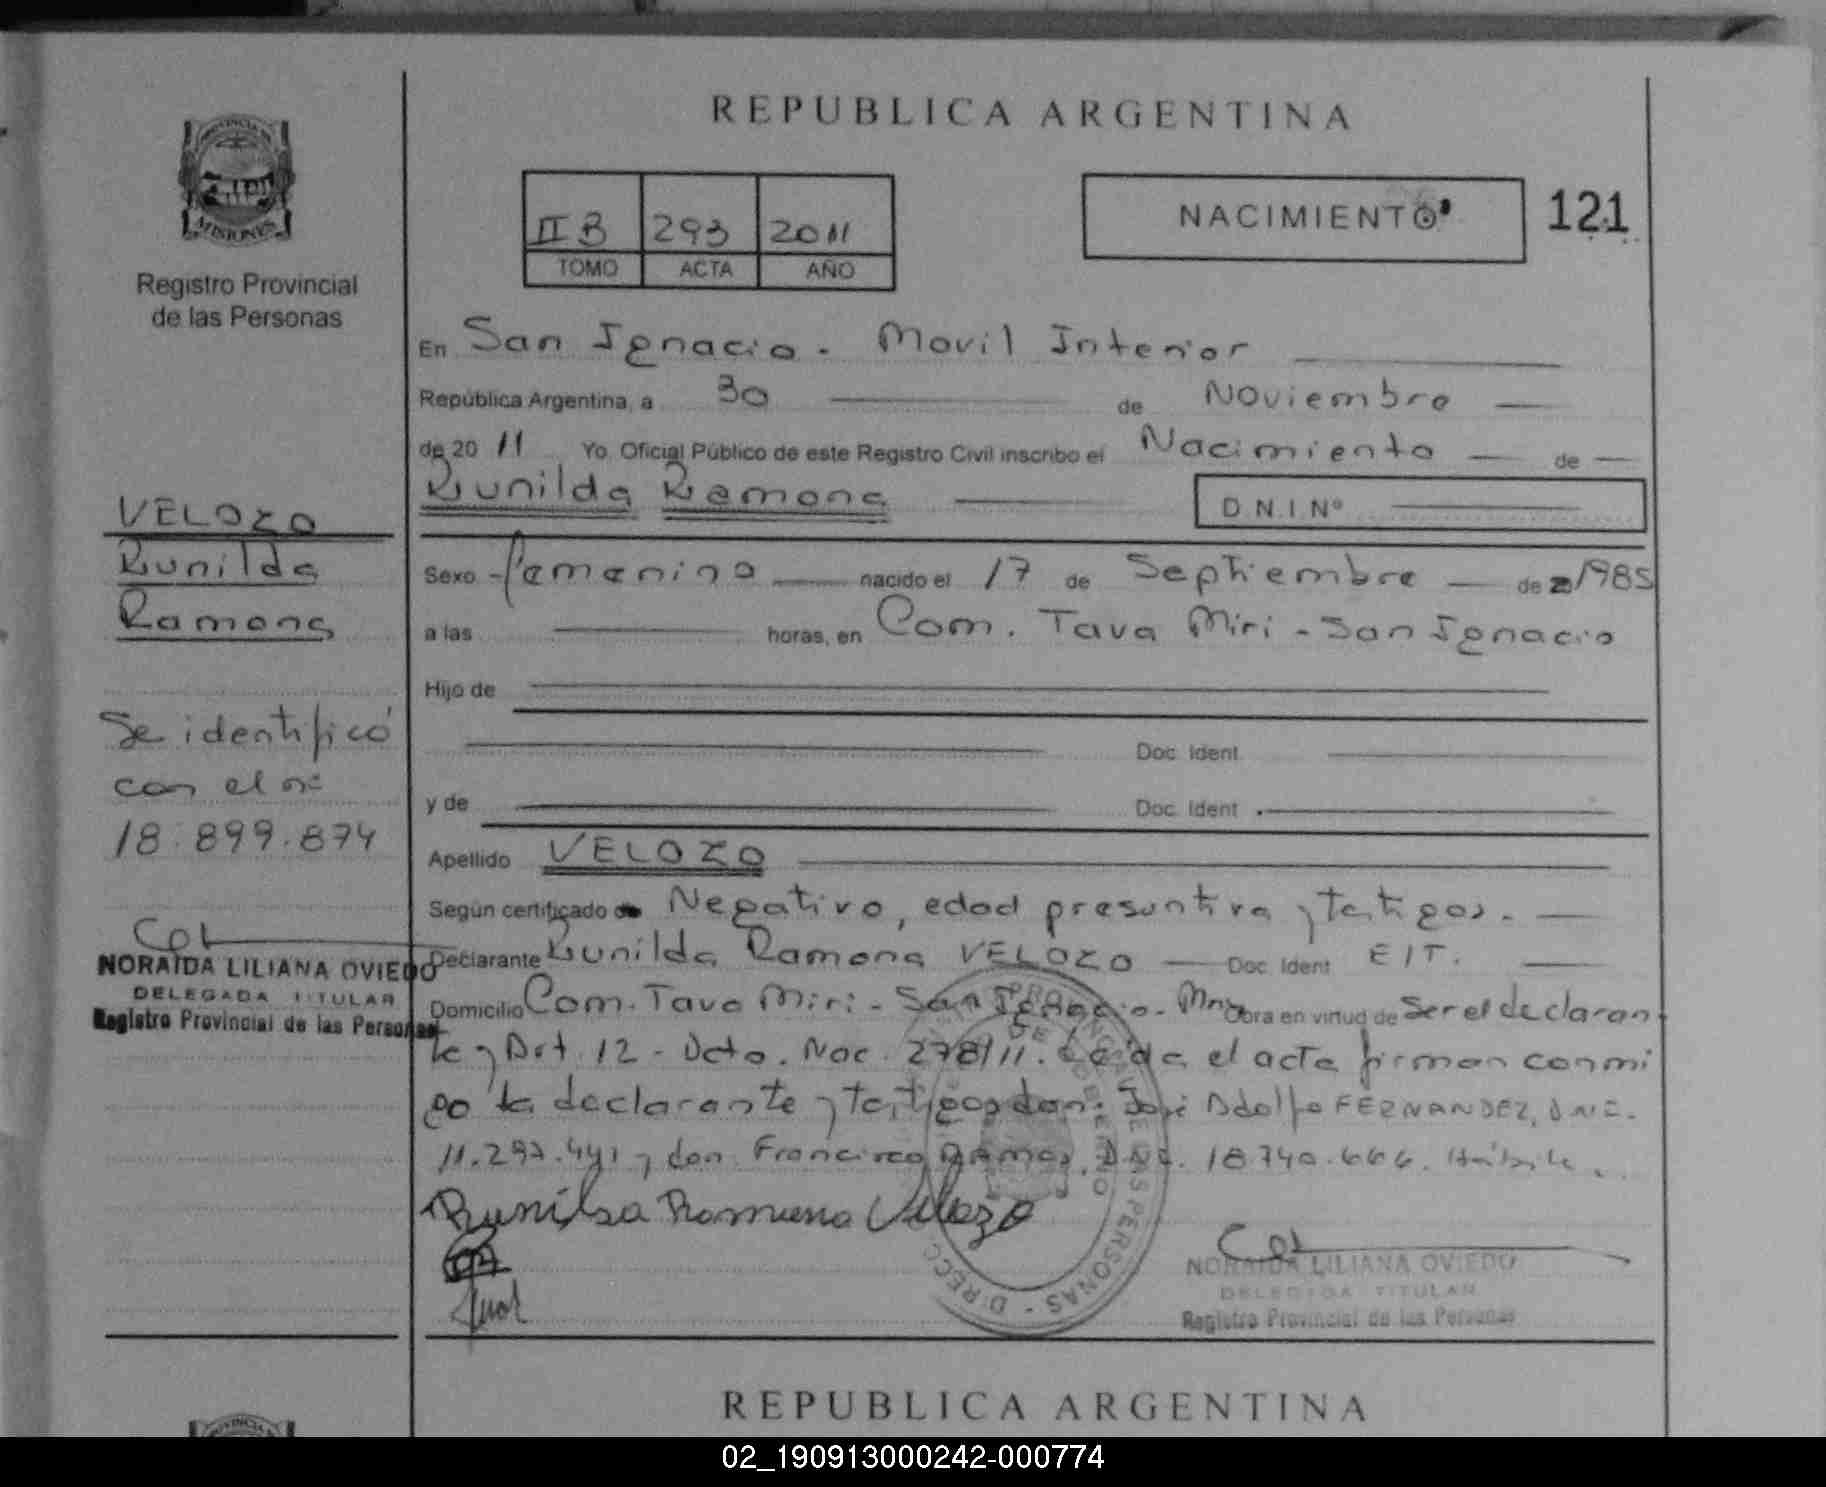 REPUBLICA ARGENTINA
PROVINCIA DE
MISIONES
Registro Provincial
de las Personas
II B 293 2011
TOMO ACTA AÑO
NACIMIENTO
121
En San Ignacio - Movil Interior
República Argentina, a 30 de Noviembre
de 20 11 Yo, Oficial Público de este Registro Civil inscribo el Nacimiento de
Runilda Ramona
D.N.I. Nº
VELOZO
Runilda
Ramona
Sexo femenino nacido el 17 de Septiembre de 1985
a las horas, en Com. Tava Miri - San Ignacio
Hijo de
Doc. Ident.
y de Doc. Ident.
Se identificó
con el nº
18.899.874
Apellido VELOZO
Según certificado Negativo, edad presuntiva y testigos.
Declarante Runilda Ramona VELOZO Doc. Ident. EIT.
NORAIDA LILIANA OVIEDO
DELEGADA TITULAR
Registro Provincial de las Personas
Domicilio Com. Tava Miri - San Ignacio - Mnes Obra en virtud de Ser el declaran
te y Art. 12 - Dcto. Nac. 278/11. Leida el acta firman conmi
go la declarante y testigos don: José Adolfo FERNANDEZ, DNI.
11.297.441 y don Francisco RAMOS, DNI. 18.740.666. Hábiles.
Runilda Ramona Velozo
NORAIDA LILIANA OVIEDO
DELEGADA TITULAR
Registro Provincial de las Personas
REPUBLICA ARGENTINA
02_190913000242-000774